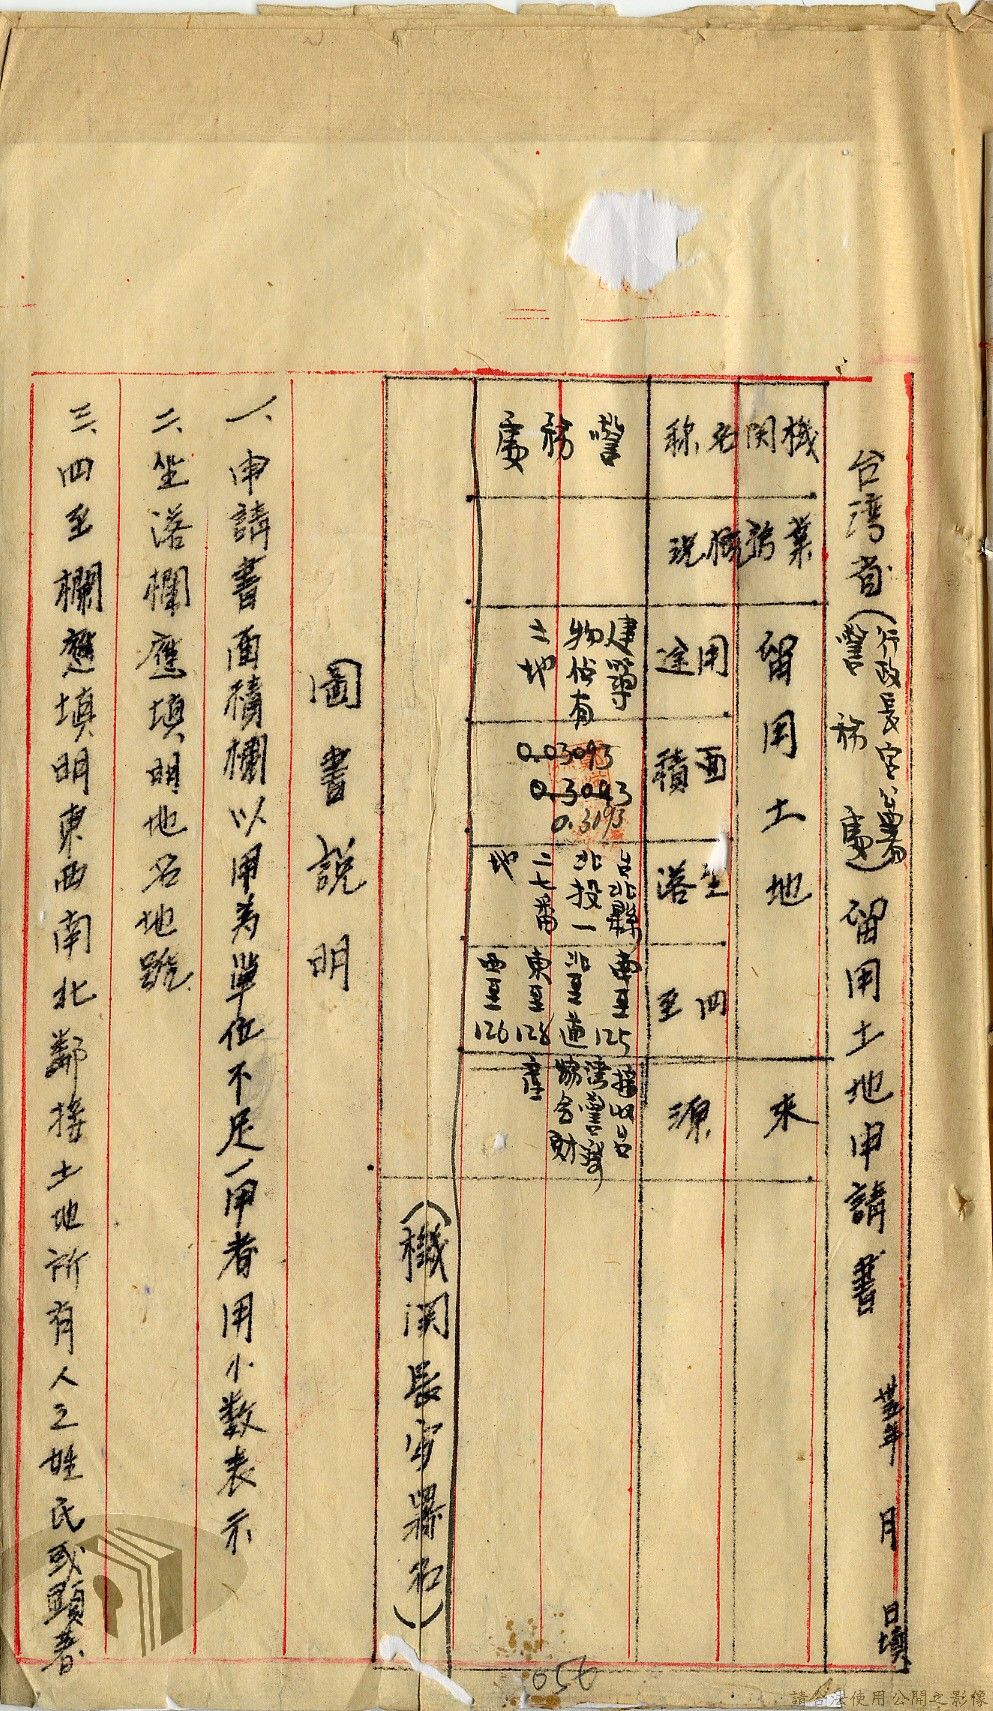 台湾省(行政長官公署警務處)留用土地申請書 卅五年 月 日填
機関名称
業務概況
留用土地
用途
面積
坐落
四至
來源
警務處
建築物佔有土地
0.03093
0.3093
0.3093
台北縣北投一二七番地
南至125
北至道
東至128
西至126
接收台湾警察協会財產
(機関長官署名)
圖書說明
一、申請書面積欄以甲為單位不足一甲者用小数表示
二、坐落欄應填明地名地號
三、四至欄應填明東西南北鄰接土地所有人之姓氏或顕著
056
請合法使用公開之影像